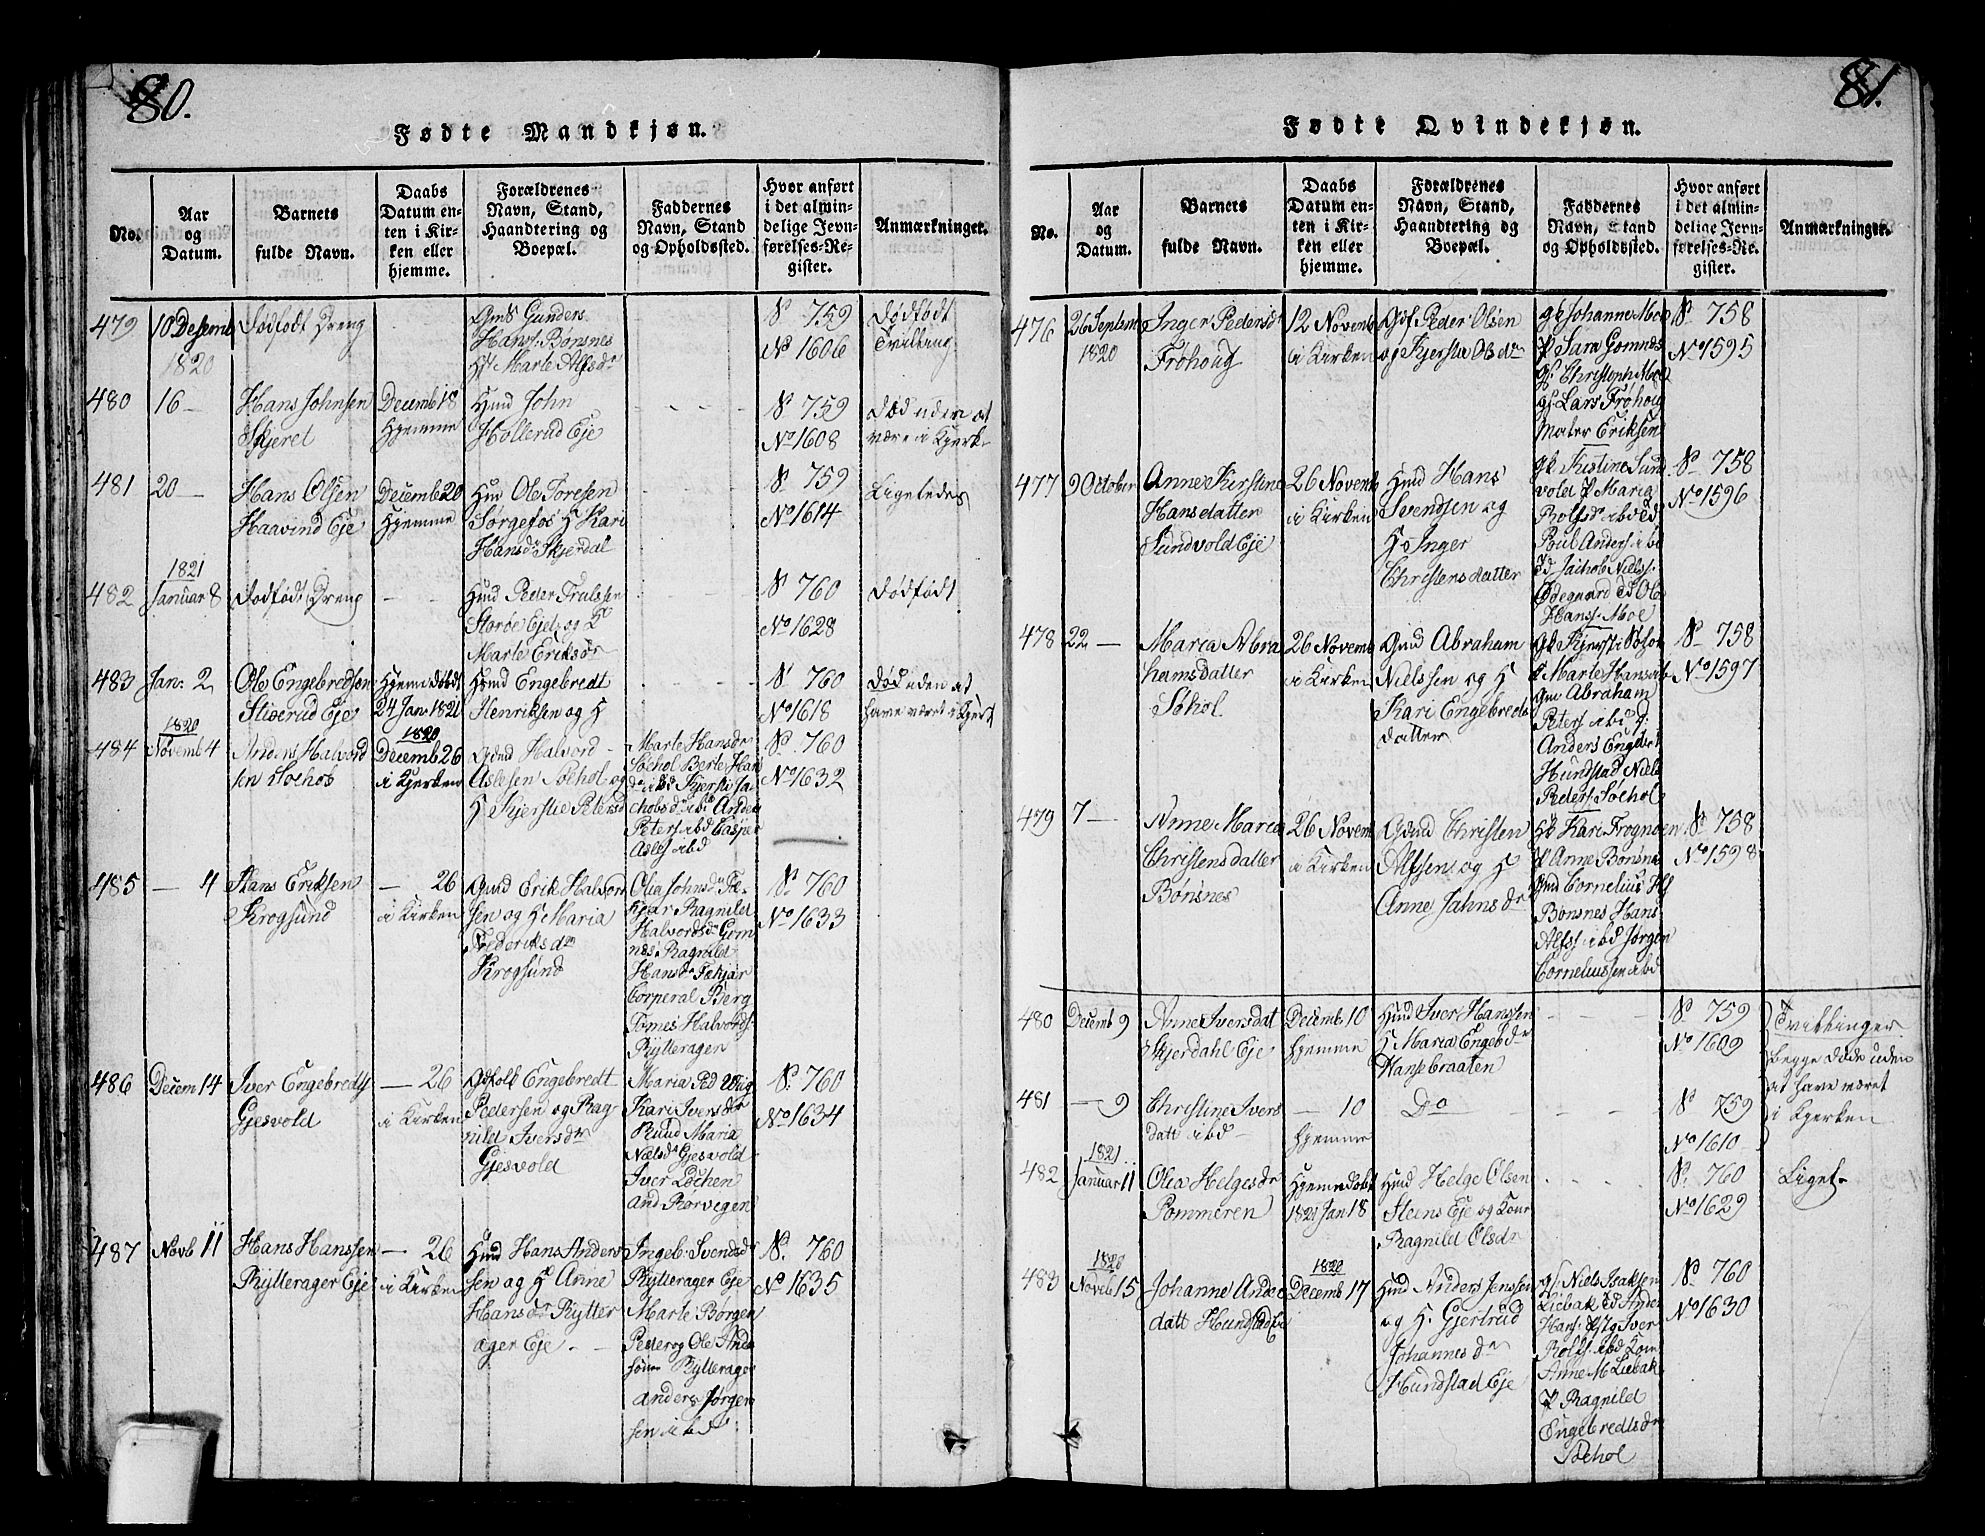 80.
Fødte Mandkjøn.
No.
Aar
og
Datum.
Barnets
fulde Navn.
Daabs
Datum en-
ten i Kir-
ken eller
hjemme.
Forældrenes
Navn, Stand,
Haandtering og
Boepæl.
Faddernes
Navn, Stand
og Opholdssted.
Hvor anført
i det almin-
delige Jevn-
førelses-Re-
gister.
Anmærkninger.
479
10 Desemb
1820
Dødfødt Dreng
Gunders
Hans. Bønsnes
Marte Alfsdr
S 759
No 1606
Dødfødt
Tvilling
480
16 —
Hans Johnsen
Skjeret
Decemb 18
Hjemme
Huusmd John
Hollerud Eje
S 759
No 1608
Død uden at
være i Kjerk-
481
20 —
Hans Olsen
Haavind Eje
Decemb 20
Hjemme
Hmd Ole Toresen
Sørgefos H Kari
Hansdr Skjerdal
S 759
No 1614
Ligeledes
482
1821
Januar 8
Dødfødt Dreng
Hmd Peder Trulssen
Storøe Eje og K
Marte Eriksdr
S 760
No 1628
Dødfødt
483
Jan: 2
Ole Engebredsen
Stiverud Eje
Hjemedøbt
24 Jan 1821
Hmd Engebredt
Henriksen og H
S 760
No 1618
Død uden at
have været i Kjerk
484
1820
Novemb 4
Anders Halvord
sen Soehol
1820
Decemb 26
i Kjerken
Gdmd Halvord
Aslesen Soehol og
H Kjerstie Petersd
Marte Hansdr
Søehol Berte Han
dr ibd Kjersti Ja
chobsdr ibd Anders
Peters ibd Casper
Asles ibd
S. 760
No 1632
485
— 4
Hans Eriksen
Krogsund
— 26
i Kirken
Gmd Erik Halvor
sen og H Maria
Frederiksdr
Krogsund
Olia Johnsdr Fe-
kjær Ragnild
Halvordsdr Gom
næs Ragnild
Hansdr Fekjær
Corperal Berg
Tomes Halvords.
Rytteragen
S. 760
No 1633
486
Decem 14
Iver Engebredts
Gjesvold
— 26
i Kirken
Engebredt
Pedersen og Rag
nild Iversdr
Gjesvold
Maria Ped
Kari Iversdr
Ruud Maria
Nielsdr Gjesvold
Iver Løchen
And Rørvegen
S. 760
No 1634
487
Novb 11
Hans Hanssen
Rytterager Eje
— 26
i Kirken
Hmd Hans Anders
sen og H Anne
Hansdr Rytter
ager Eje
Ingeb. Svendsdr
Rytterager Eje
Marte Borgen
Peder og Ole Ands
sønner Rytterager
Anders Jørgen
sen ibd
S. 760
No 1635
81.
Fødte Qvindekjøn.
No.
Aar
og
Datum.
Barnets
fulde Navn.
Daabs
Datum en-
ten i Kir-
ken eller
hjemme.
Forældrenes
Navn, Stand,
Haandtering og
Boepæl.
Faddernes
Navn, Stand
og Opholdssted.
Hvor anført
i det almin-
delige Jevn-
førelses-Re-
gister.
Anmærkninger.
476
26 Septem
1820
Inger Pedersdr
Frøhoug
12 Novemb
i Kirken
Peder Olsen
og Kjerstie Olsdr
Johanne Moe
P Sara Gomnes
Christoph Moe
Lars Frøhoug
Mater Eriksen
S 758
No 1595
477
9 October
Anne Kirstine
Hansdatter
Sundvold Eje
26 Novemb
i Kirken
Hmd Hans
Svendsen og
H Inger
Christensdatter
gk Kistine Sund
vold P Maria
Rolfsdr ibd Ed
Poul Anders ibd
Ed Jachob Niels.
Ødegaard Ed Ole
Hans. Moe
S 758
No 1596
478
22 —
Maria Abra
hamsdatter
Søhol
26 Novemb
i Kirken
Gmd Abraham
Nielssen og H
Kari Engebreds
datter
gk Kjersti Søhol
P Marte Hans ib
gm Abraham
Peters ibd
Anders Engebr
Hundstad Niels
Peders. Søehol
S. 758
No 1597
479
7 —
Anne Maria
Christensdatter
Bønsnes
26 Novem
i Kirken
Gdmd Christen
Alfsen og H
Anne Jahnsdr
gk Kari Frognøen
P Anne Bønsnæ
Gmd Cornelius
Bønsnes Hans
Alfs. ibd Jørgen
Corneliussen ibd
S 758
No 1598
480
Decemb 9
Anne Iversdat
Skjerdahl Eje
Decemb 10
hjemme
Hmd Iver Hanssen
H Maria Engebdr
Hansebraaten
S 759
No 1609
Tvillinger
begge døde uden
at have været
i Kjerken
481
— 9
Christine Ivers
datt ibd —
— 10
hjemme
Do
S 759
No 1610
482
1821
Januar 11
Olea Helgesdr
Pommeren
Hjemedøbt
1821 Jan 18
Hmd Helge Olsen
Steens Eje og Kone
Ragnild Olsdr
S. 760
No 1629
Liget-
483
1820
Novb 15
Johanne Anders
datt Hundstad Eje
1820
Decemb 17
Hmd Anders Jenssen
og H. Gjertrud
Johannesdr
Hundstad Eje
Niels Isaksen
Liebak Ed Anders
Hans. Iver
Rolfs. ibd Kone
Anne M Liebak
P Ragnild
Engebredtsdr
Søehol
S. 760
No 1630